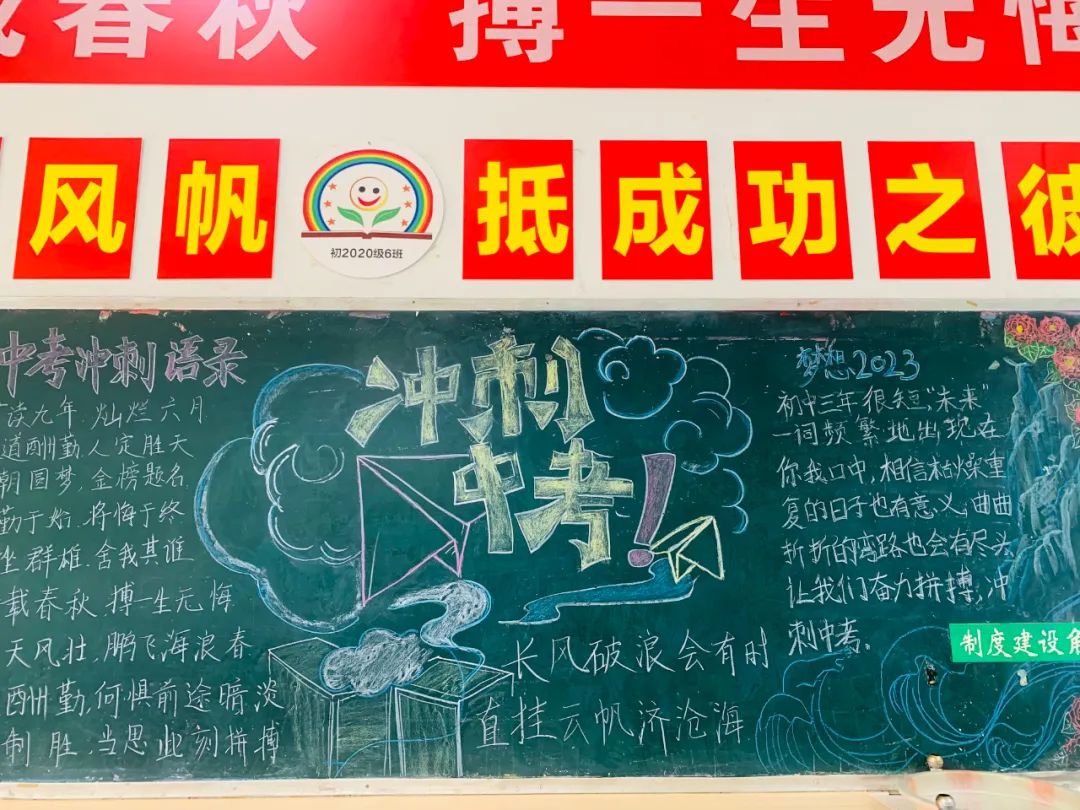 春秋 搏一生无悔
风帆 抵成功之彼
初2020级6班
中考冲刺语录
读九年,灿烂六月
道酬勤人定胜天
朝圆梦,金榜题名
勤于始,将悔于终
坐群雄,舍我其谁
载春秋,搏一生无悔
天风壮,鹏飞海浪春
酬勤,何惧前途暗淡
制胜,当思此刻拼搏
冲刺
中考!
长风破浪会有时
直挂云帆济沧海
梦想2023
初中三年很短,“未来”
一词频繁地出现在
你我口中,相信枯燥重
复的日子也有意义,曲曲
折折的弯路也会有尽头
让我们奋力拼搏,冲
刺中考。
制度建设